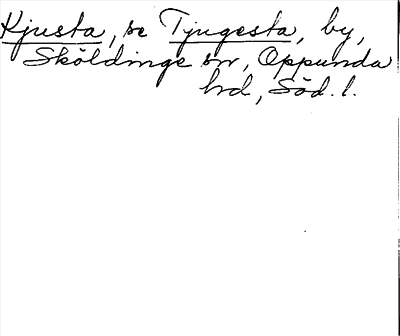 Kjusta, se Tjugesta, by,
Sköldinge sn, Oppunda
hd, Söd. l.